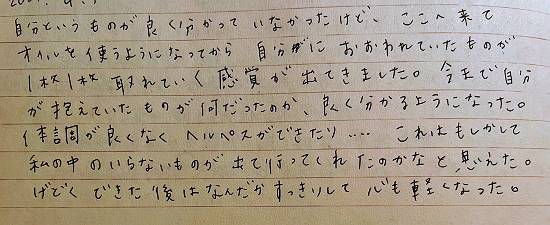 自分というものが良く分かっていなかったけど、ここへ来て
オイルを使うようになってから 自分がにおおわれていたものが
1枚1枚 取れていく感覚が出てきました。今まで自分
が抱えていたものが何だったのか、良く分かるようになった。
体調が良くなく ヘルペスができたり…… これはもしかして
私の中のいらないものが出て行ってくれたのかなと思えた。
げどくできた後はなんだかすっきりして心も軽くなった。